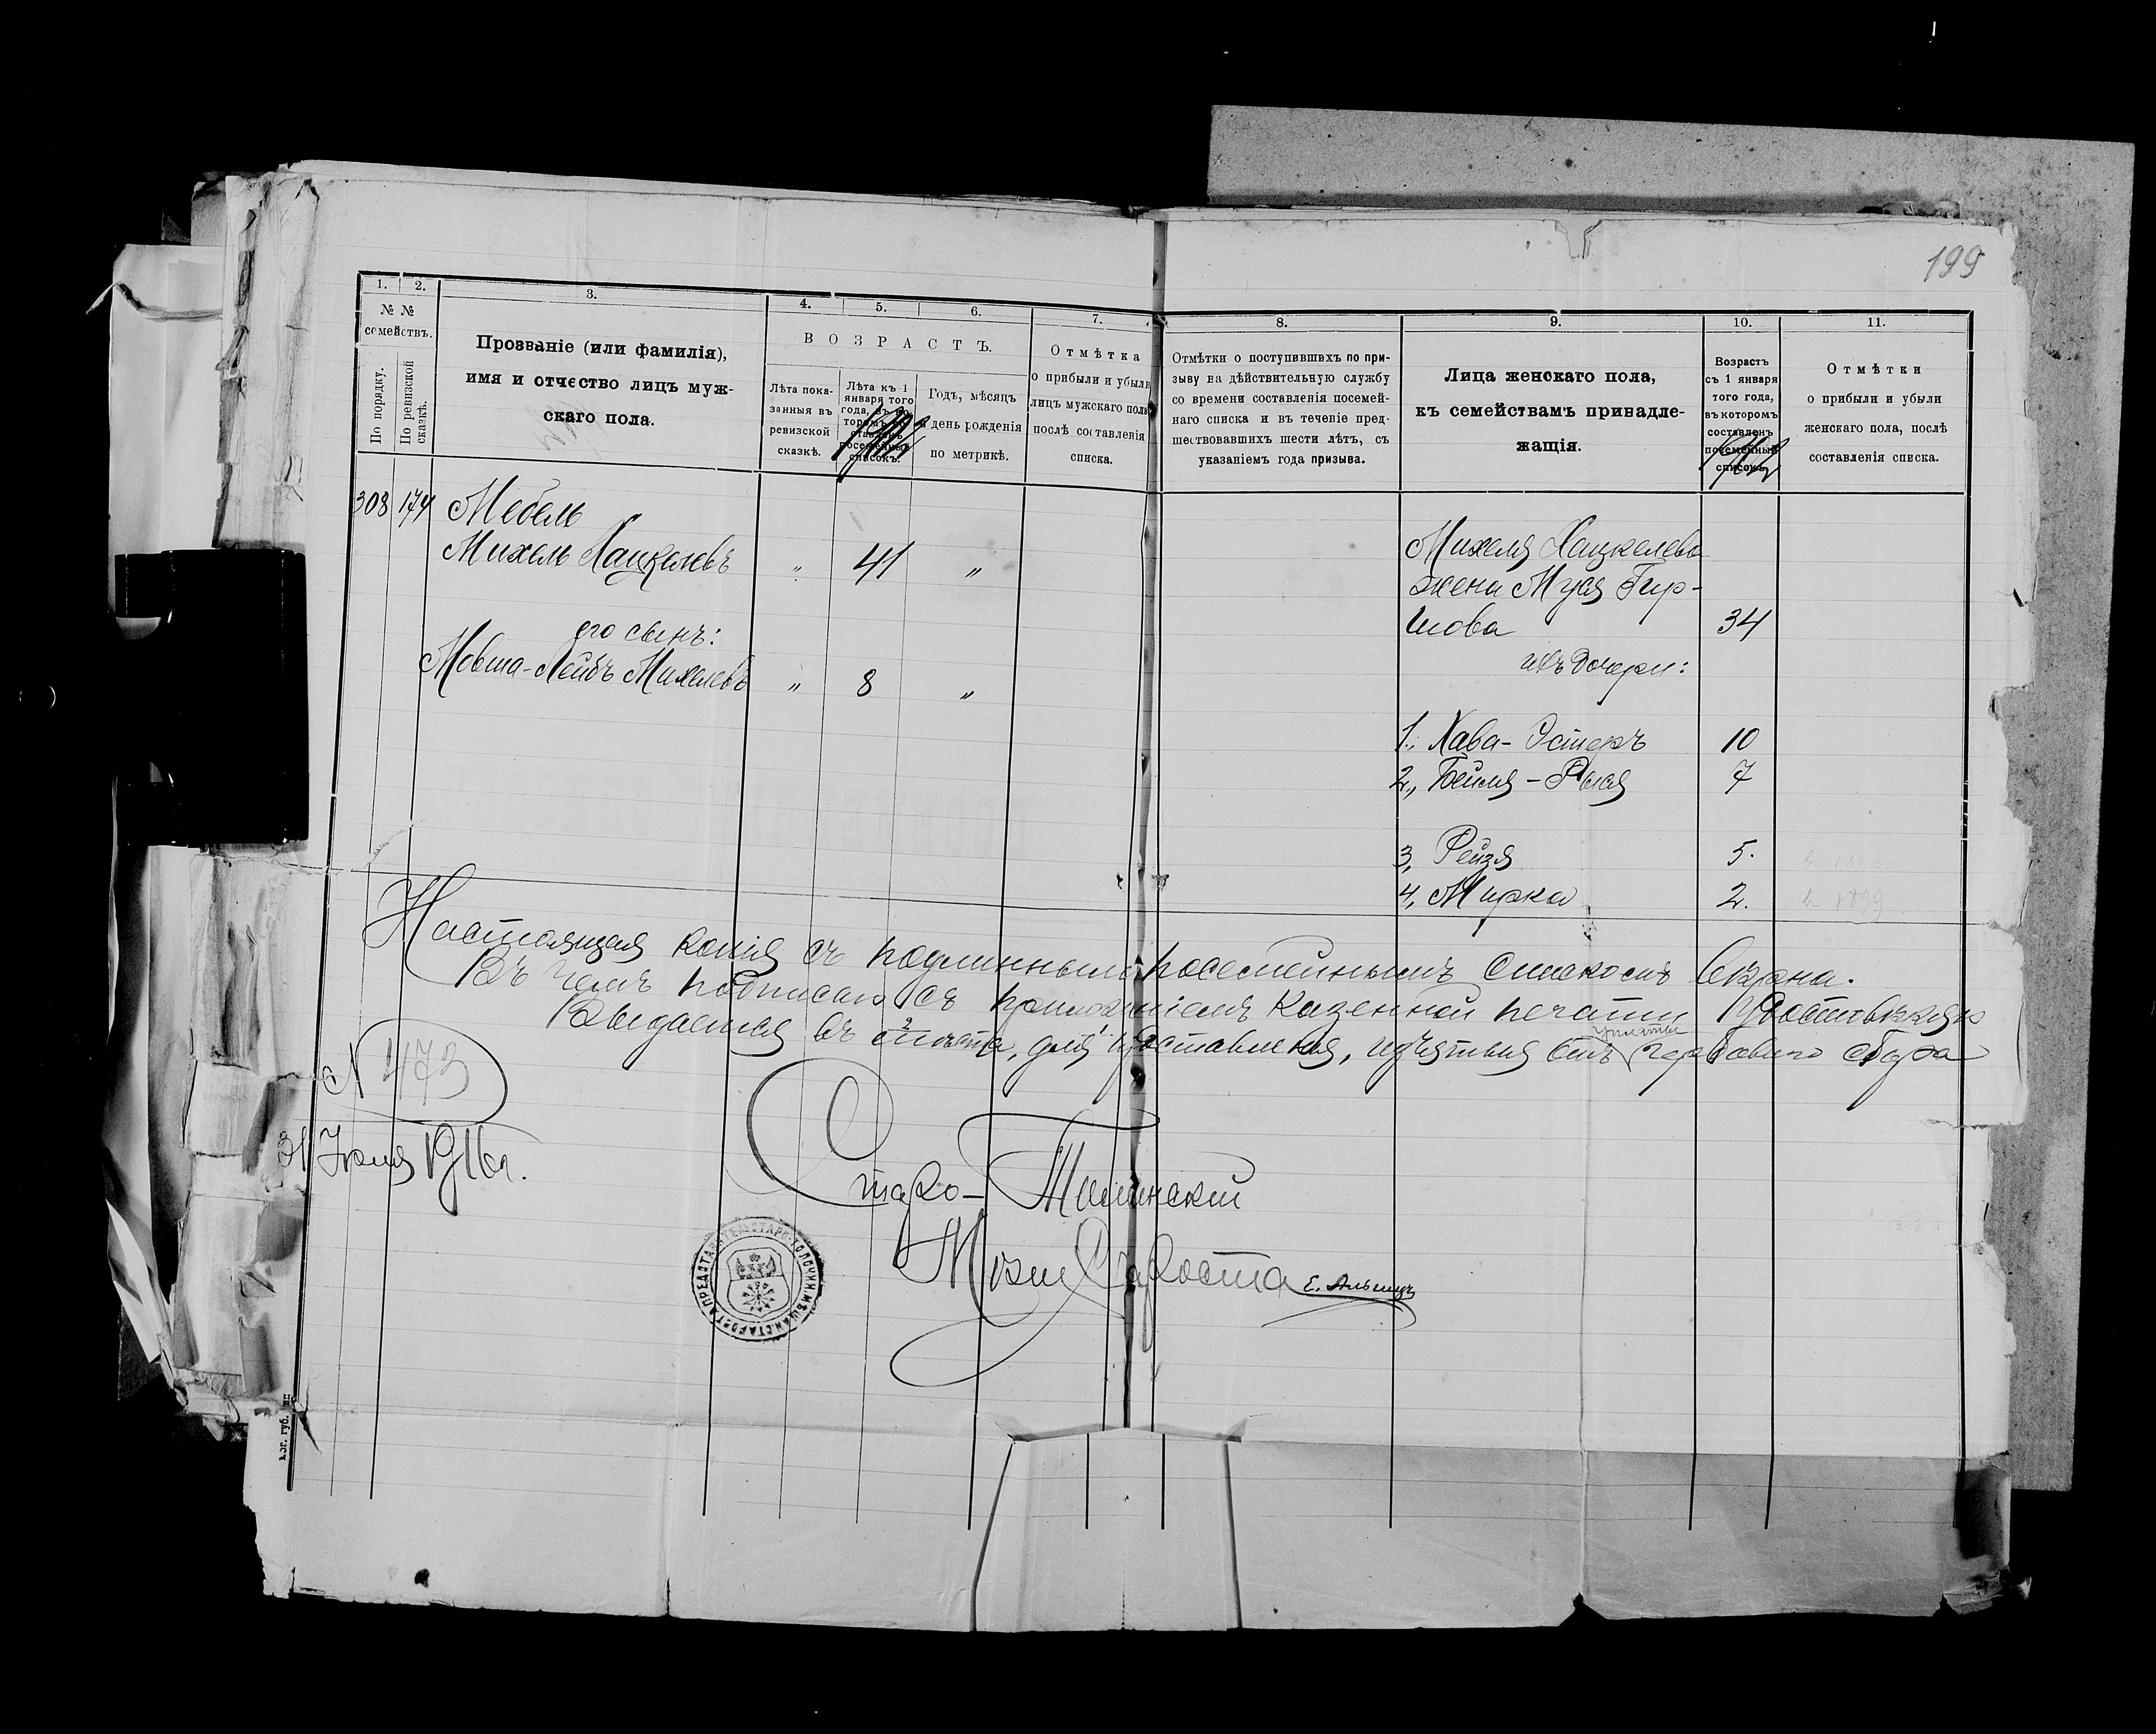 199
1. 2. 3. 4. 5. 6. 7. 8. 9. 10. 11.
№ №
семействъ.
По порядку.
По ревизской
сказкѣ.
Прозваніе (или фамилія),
имя и отчество лицъ муж-
скаго пола.
В О З Р А С Т Ъ.
Лѣта пока-
занныя въ
ревизской
сказкѣ.
Лѣта къ 1
января того
года, въ ко-
торомъ со-
ставленъ
посемейный
списокъ.
Годъ, мѣсяцъ
и день рожденія
по метрикѣ.
Отмѣтка
о прибыли и убыли
лицъ мужскаго пола
послѣ составленія
списка.
Отмѣтки о поступившихъ по при-
зыву на дѣйствительную службу
со времени составленія посемей-
наго списка и въ теченіе пред-
шествовавшихъ шести лѣтъ, съ
указаніемъ года призыва.
Лица женскаго пола,
къ семействамъ принадле-
жащія.
Возрастъ
съ 1 января
того года,
въ которомъ
составленъ
посемейный
списокъ.
Отмѣтки
о прибыли и убыли
женскаго пола, послѣ
составленія списка.
308 174 Мебель
Михель Хацкелевъ " 41 "
его сынъ:
Мовша-Лейбъ Михелевъ " 8 "
Михеля Хацкелева
жена Муся Гир-
шова 34
ихъ дочери:
1., Хава-Эстеръ 10
2., Бейля-Рыся 7
3, Рейзя 5.
4, Мирка 2.
Настоящая копія съ подлиннымъ посемейнымъ спискомъ вѣрна.
Въ чемъ подписью съ приложеніемъ казенной печати удостовѣряю
Выдается въ мѣста, для представленія, изъятія отъ уплаты гербоваго сбора
N 473
31 Іюля 1916 г.
Старо-Толочинскій
Мѣщ Староста Е. Альшицъ
ПРЕДСТАВИТЕЛЬ СТАРО-ТОЛОЧИН. МѢЩАН. СТАРОСТА